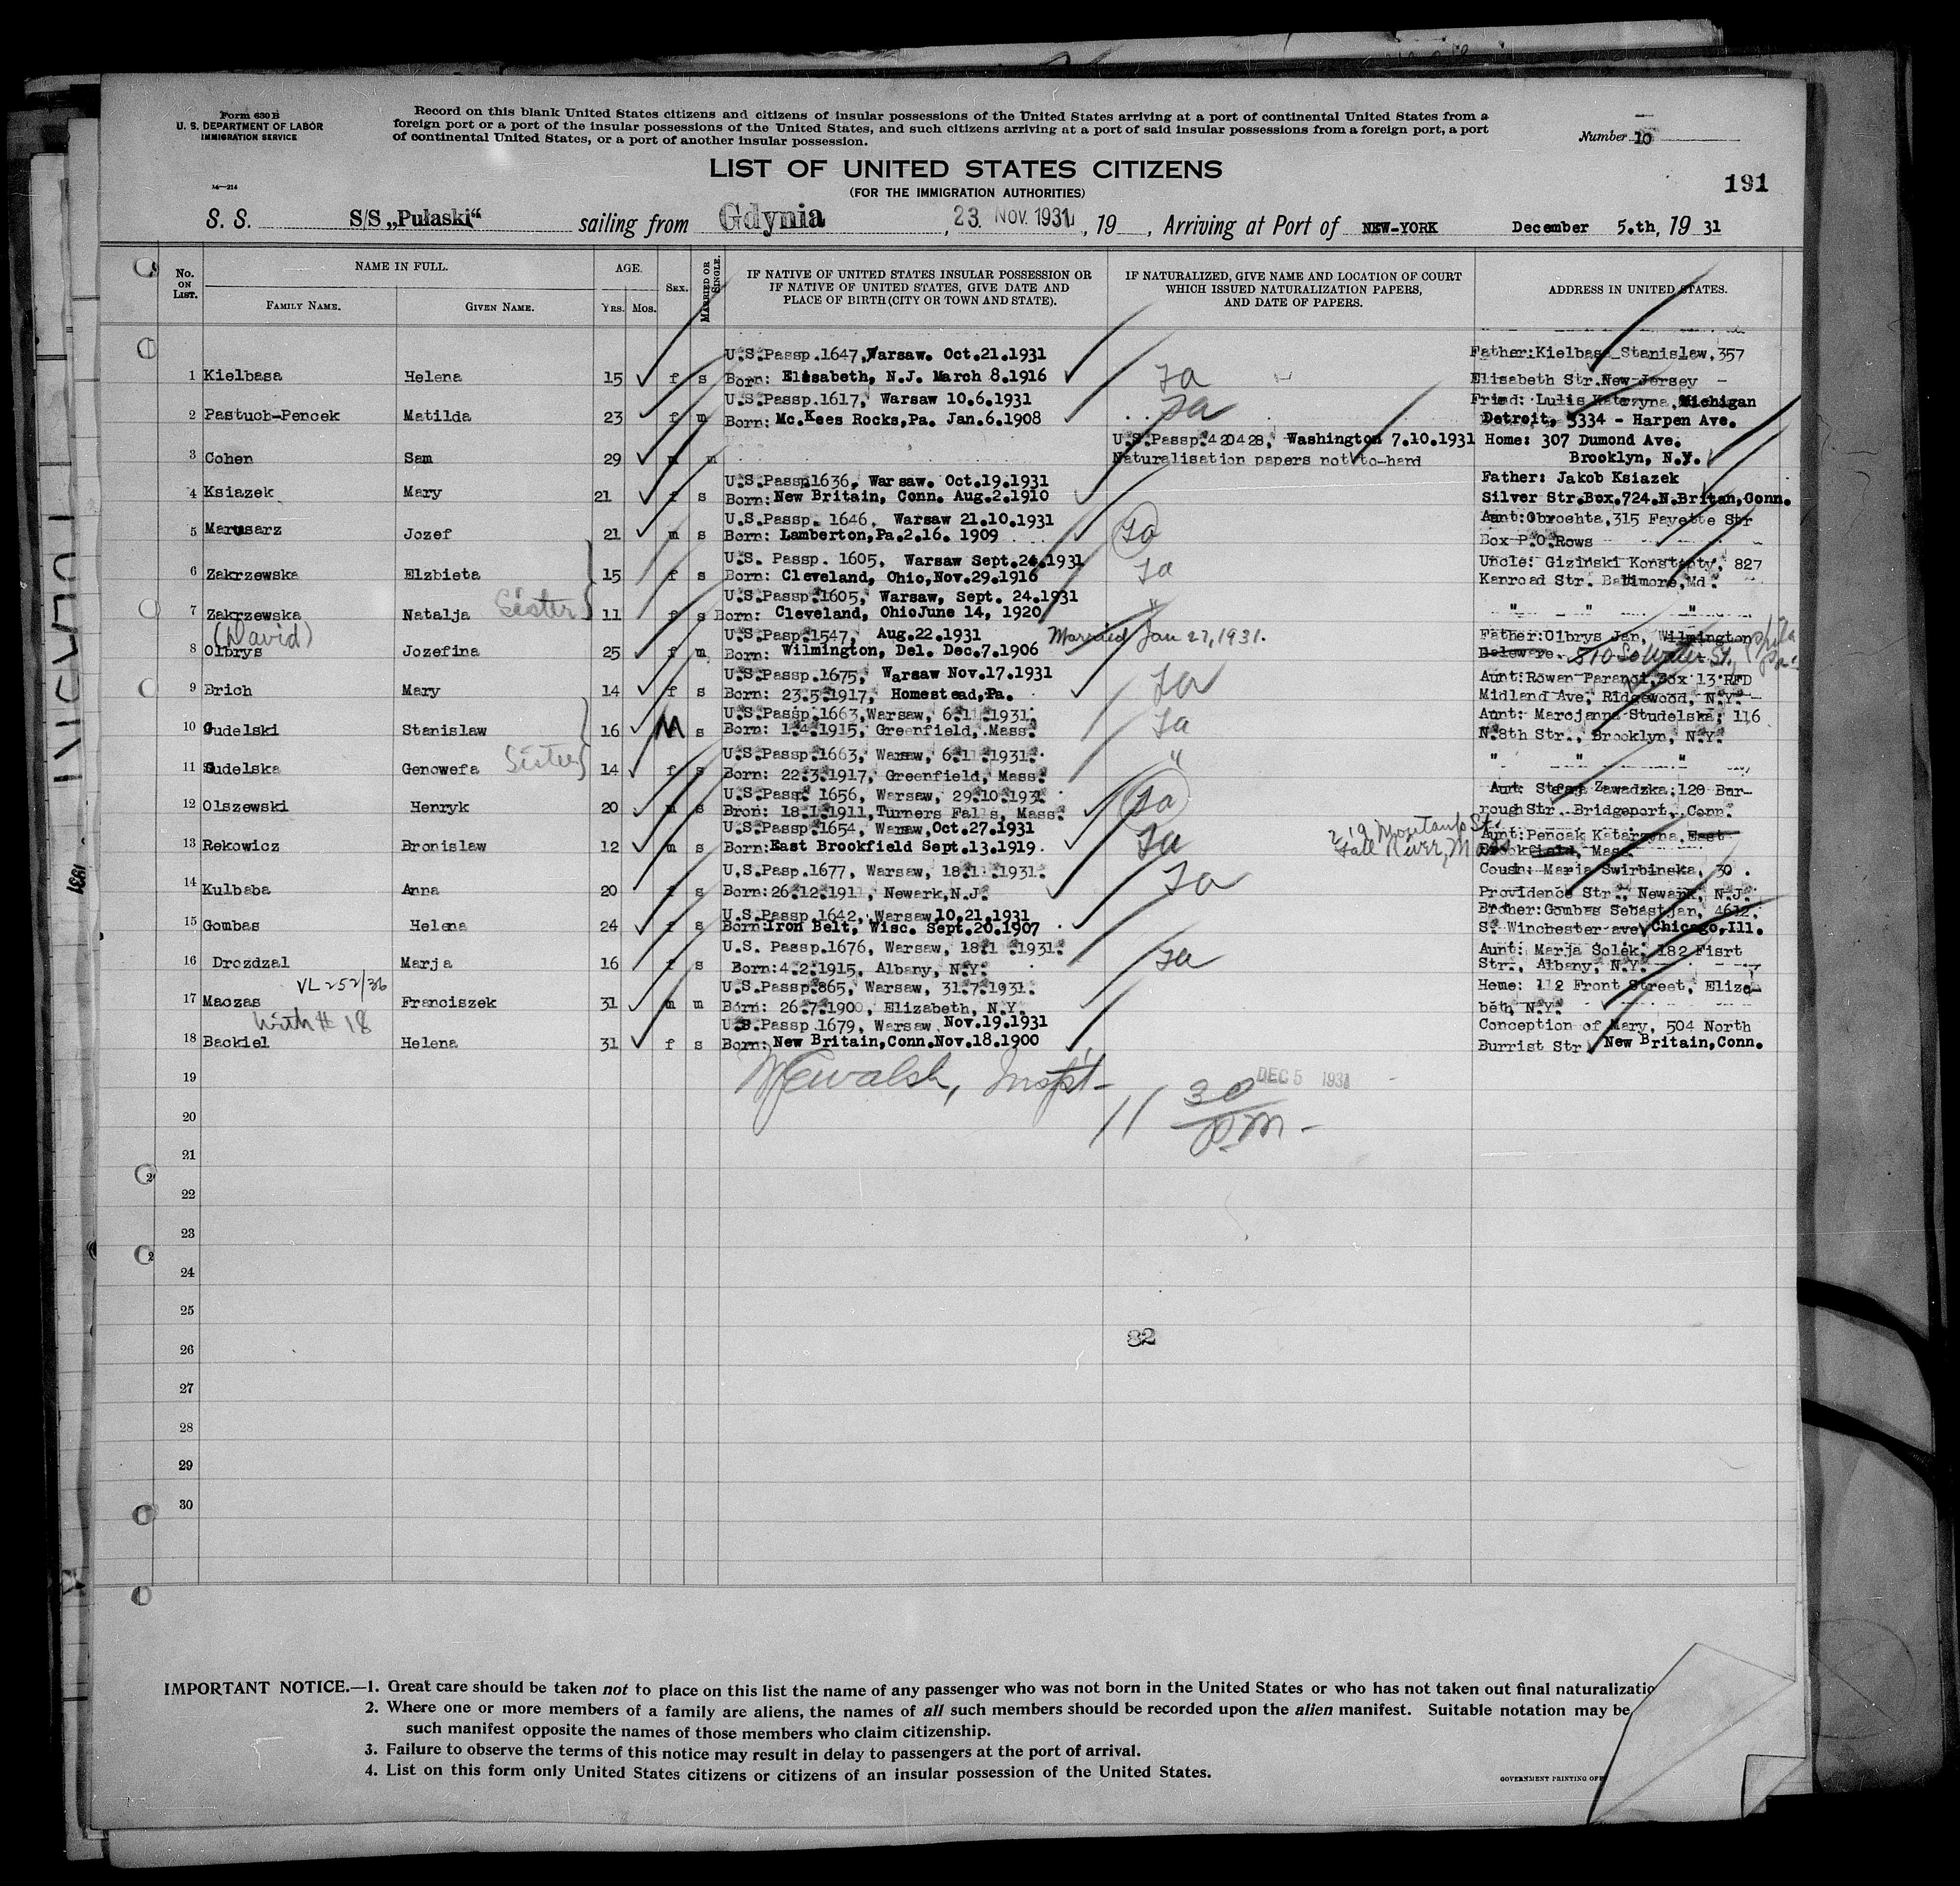 Form 630 B
U. S. DEPARTMENT OF LABOR
IMMIGRATION SERVICE
14—214
Record on this blank United States citizens and citizens of insular possessions of the United States arriving at a port of continental United States from a
foreign port or a port of the insular possessions of the United States, and such citizens arriving at a port of said insular possessions from a foreign port, a port
of continental United States, or a port of another insular possession.
Number 10
LIST OF UNITED STATES CITIZENS
(FOR THE IMMIGRATION AUTHORITIES)
191
S. S. S/S „Pułaski“ sailing from Gdynia, 23 Nov. 1931, 19 , Arriving at Port of NEW-YORK December 5.th, 19 31
No. ON LIST. NAME IN FULL. AGE. SEX. MARRIED OR SINGLE. IF NATIVE OF UNITED STATES INSULAR POSSESSION OR IF NATIVE OF UNITED STATES, GIVE DATE AND PLACE OF BIRTH (CITY OR TOWN AND STATE). IF NATURALIZED, GIVE NAME AND LOCATION OF COURT WHICH ISSUED NATURALIZATION PAPERS, AND DATE OF PAPERS. ADDRESS IN UNITED STATES.
FAMILY NAME. GIVEN NAME. YRS. MOS.
U.S.Passp.1647, Warsaw. Oct.21.1931 Father:Kielbasa Stanislaw, 357
1 Kielbasa Helena 15 f s Born: Elisabeth, N.J. March 8.1916 Elisabeth Str.New-Jersey
U.S.Passp.1617, Warsaw 10.6.1931 Friend: Lulis Katarzyna, Michigan
2 Pastuch-Pencek Matilda 23 f m Born: Mc.Kees Rocks,Pa. Jan.6.1908 Detroit, 5334 - Harpen Ave.
U.S.Passp.420428, Washington 7.10.1931 Home: 307 Dumond Ave.
3 Cohen Sam 29 m m Naturalisation papers not to-hand Brooklyn, N.Y.
U.S.Passp.1636, Warsaw. Oct.19.1931 Father: Jakob Ksiazek
4 Ksiazek Mary 21 f s Born: New Britain, Conn. Aug.2.1910 Silver Str.Box.724.N.Britan,Conn.
U.S.Passp. 1646, Warsaw 21.10.1931 Aunt:Obrochta,315 Fayette Str
5 Marusarz Jozef 21 m s Born: Lamberton,Pa.2.16. 1909 Box P.O.Rows
U.S. Passp. 1605, Warsaw Sept.24.1931 Uncle: Gizinski Konstanty, 827
6 Zakrzewska Elzbieta 15 f s Born: Cleveland, Ohio,Nov.29.1916 Kanroad Str. Baltimore,Md.
U.S.Passp.1605, Warsaw, Sept. 24.1931
7 Zakrzewska Natalja Sister 11 f s Born: Cleveland, OhioJune 14, 1920 " " " "
(David) U.S.Pasp.1547, Aug.22.1931 Married Jan 27, 1931. Father:Olbrys Jan, Wilmington Phila
8 Olbrys Jozefina 25 f m Born: Wilmington, Del. Dec.7.1906 Delaware. 810 So Water St. Pa.
U.S.Passp.1675, Warsaw Nov.17.1931 Aunt:Rowan Paranoi,Box 13 RFD
9 Brich Mary 14 f s Born: 23.5.1917, Homestead,Pa. Midland Ave, Ridgewood, N.Y.
U.S.Passp.1663,Warsaw, 6.11.1931. Aunt: Marojanna Studelska, 116
10 Gudelski Stanislaw 16 M s Born: 1.4.1915, Greenfield, Mass. N.8th Str., Brooklyn, N.Y.
U.S.Passp.1663, Warsaw, 6.11.1931.
11 Gudelska Genowefa Sister 14 f s Born: 22.3.1917, Greenfield, Mass. " " "
U.S.Passp. 1656, Warsaw, 29.10.1931 Aunt: Stefanja Zawadzka,120 Bur-
12 Olszewski Henryk 20 m s Bron: 18.1.1911,Turners Falls, Mass. rough Str. Bridgeport, Conn.
U.S.Passp.1654, Warsaw,Oct.27.1931 Aunt:Pencak Katarzyna, East
13 Rekowicz Bronislaw 12 m s Born:East Brookfield Sept.13.1919. Fall River, Mass Brookfield, Mass.
U.S.Pasp.1677, Warsaw, 18.11.1931. Cousin: Maria Swirbinska, 30
14 Kulbaba Anna 20 f s Born:26.12.1911, Newark,N.J. Providence Str., Newark, N.J.
U.S.Passp.1642, Warsaw 10.21.1931 Brother:Gombas Sebastjan, 4612.
15 Gombas Helena 24 f s Born:Iron Belt, Wisc. Sept.20.1907 S. Winchester ave Chicago,Ill.
U.S. Passp.1676, Warsaw, 18.11.1931. Aunt: Marja Solek, 182 Fisrt
16 Drozdzal Marja 16 f s Born:4.2.1915, Albany, N.Y. Str., Albany, N.Y.
VL 252/36 U.S.Passp.865, Warsaw, 31.7.1931. Home: 112 Front Street, Eliza-
17 Maczas Franciszek 31 m m Born: 26.7.1900, Elizabeth, N.Y. beth, N.Y.
With # 18 U.S.Passp 1679, Warsaw Nov.19.1931 Conception of Mary, 504 North
18 Backiel Helena 31 f s Born: New Britain,Conn.Nov.18.1900 Burrist Str New Britain,Conn.
Walsh, Inspt-
DEC 5 1931
11 30
PM
19
20
21
22
23
24
25
26
27
28
29
30
82
IMPORTANT NOTICE.—1. Great care should be taken not to place on this list the name of any passenger who was not born in the United States or who has not taken out final naturalizatio
2. Where one or more members of a family are aliens, the names of all such members should be recorded upon the alien manifest. Suitable notation may be
such manifest opposite the names of those members who claim citizenship.
3. Failure to observe the terms of this notice may result in delay to passengers at the port of arrival.
4. List on this form only United States citizens or citizens of an insular possession of the United States.
GOVERNMENT PRINTING OFF